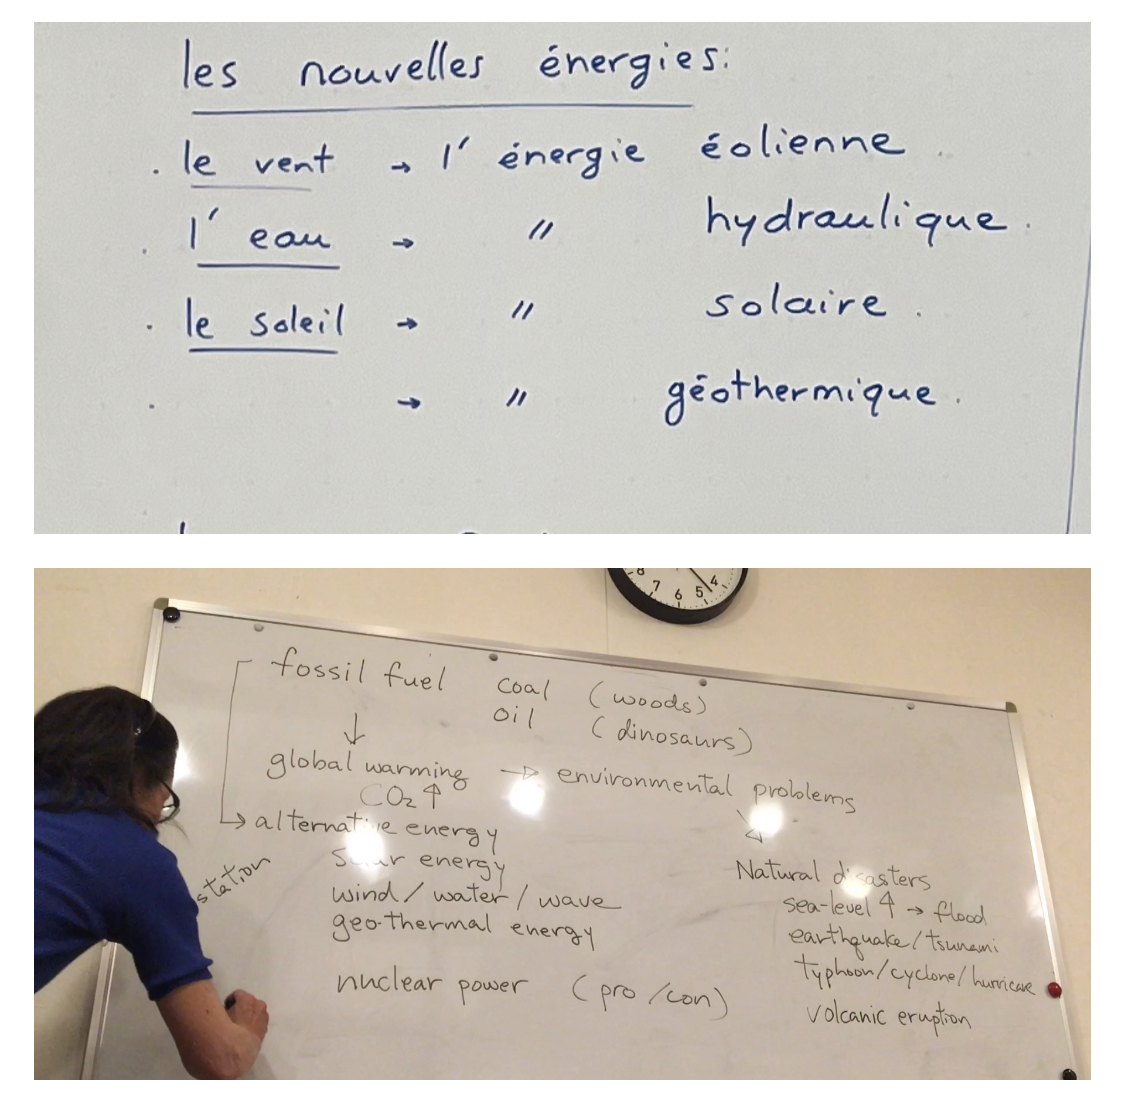 les nouvelles énergies:
. le vent → l' énergie éolienne .
. l' eau → " hydraulique .
. le soleil → " solaire .
. → " géothermique .
8 7 6 5 4
fossil fuel coal (woods)
oil (dinosaurs)
↓
global warming → environmental problems
CO2 ↑
→ alternative energy
solar energy
station
wind / water / wave
geo-thermal energy
nuclear power (pro / con)
Natural disasters
sea-level ↑ → flood
earthquake / tsunami
typhoon / cyclone / hurricane
volcanic eruption